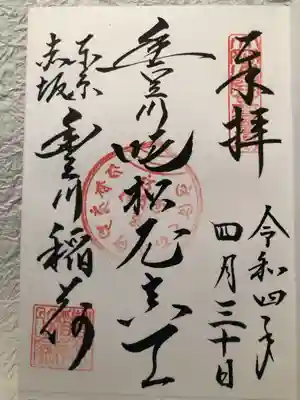 奉拝
令和四年
四月三十日
豊川吒枳尼真天
東京
赤坂
豊川稲荷